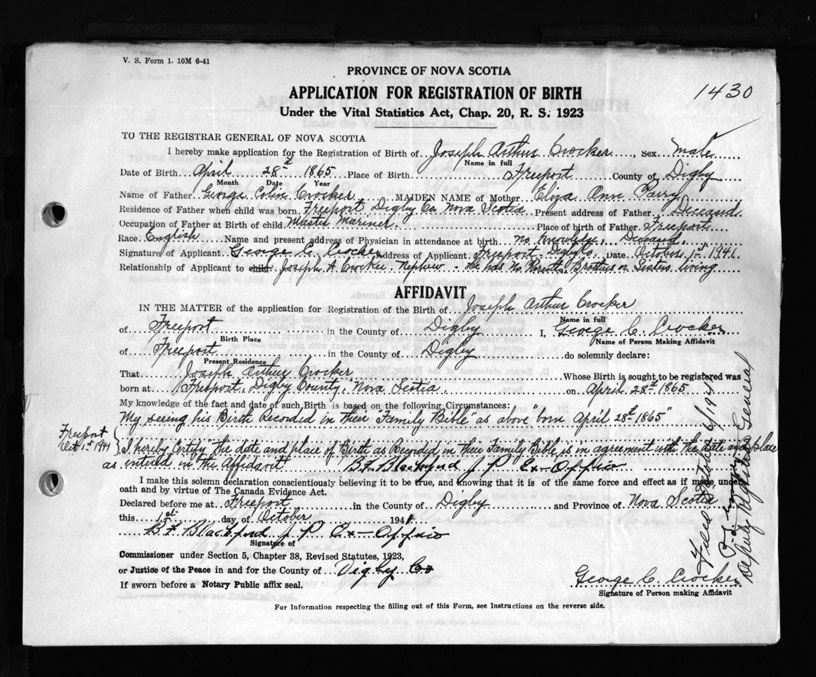 V. S. Form 1. 10M 6-41
PROVINCE OF NOVA SCOTIA
1430
APPLICATION FOR REGISTRATION OF BIRTH
Under the Vital Statistics Act, Chap. 20, R. S. 1923
TO THE REGISTRAR GENERAL OF NOVA SCOTIA
I hereby make application for the Registration of Birth of Joseph Arthur Crocker, Sex male
Name in full
Date of Birth April 28th 1865 Place of Birth Freeport County of Digby
Month Date Year
Name of Father George Colin Crocker MAIDEN NAME of Mother Eliza Ann
Residence of Father when child was born Freeport Digby Co. Nova Scotia Present address of Father Deceased
Occupation of Father at Birth of child Master Mariner. Place of birth of Father Freeport
Race English Name and present address of Physician in attendance at birth No Knowledge, Deceased
Signature of Applicant George C. Crocker Address of Applicant Freeport Digby Co. Date October 1st 1941
Relationship of Applicant to child Joseph A Crocker - Nephew - He has No Parents, Brothers or Sisters living
AFFIDAVIT
IN THE MATTER of the application for Registration of the Birth of Joseph Arthur Crocker
Name in full
of Freeport in the County of Digby I, George C. Crocker
Birth Place Name of Person Making Affidavit
of Freeport in the County of Digby do solemnly declare:
Present Residence
That Joseph Arthur Crocker Whose Birth is sought to be registered was
born at Freeport, Digby County, Nova Scotia on April 28th 1865
My knowledge of the fact and date of such Birth is based on the following Circumstances:
My seeing his Birth Recorded in their "Family Bible" as above "born April 28th 1865"
Freeport
Oct 1st 1941
I hereby Certify the date and place of Birth as Recorded in their Family Bible, is in agreement with the date and place
as entered in the Affidavit B. F. Blackford J. P. Ex-Officio
I make this solemn declaration conscientiously believing it to be true, and knowing that it is of the same force and effect as if made under
oath and by virtue of The Canada Evidence Act.
Declared before me at Freeport in the County of Digby and Province of Nova Scotia
this 1st day of October 1941
B. F. Blackford J P Ex-Officio
Signature of
Commissioner under Section 5, Chapter 38, Revised Statutes, 1923,
or Justice of the Peace in and for the County of Digby Co
If sworn before a Notary Public affix seal.
George C. Crocker
Signature of Person making Affidavit
For Information respecting the filling out of this Form, see Instructions on the reverse side.
Filed October 6/1941
Deputy Registrar General